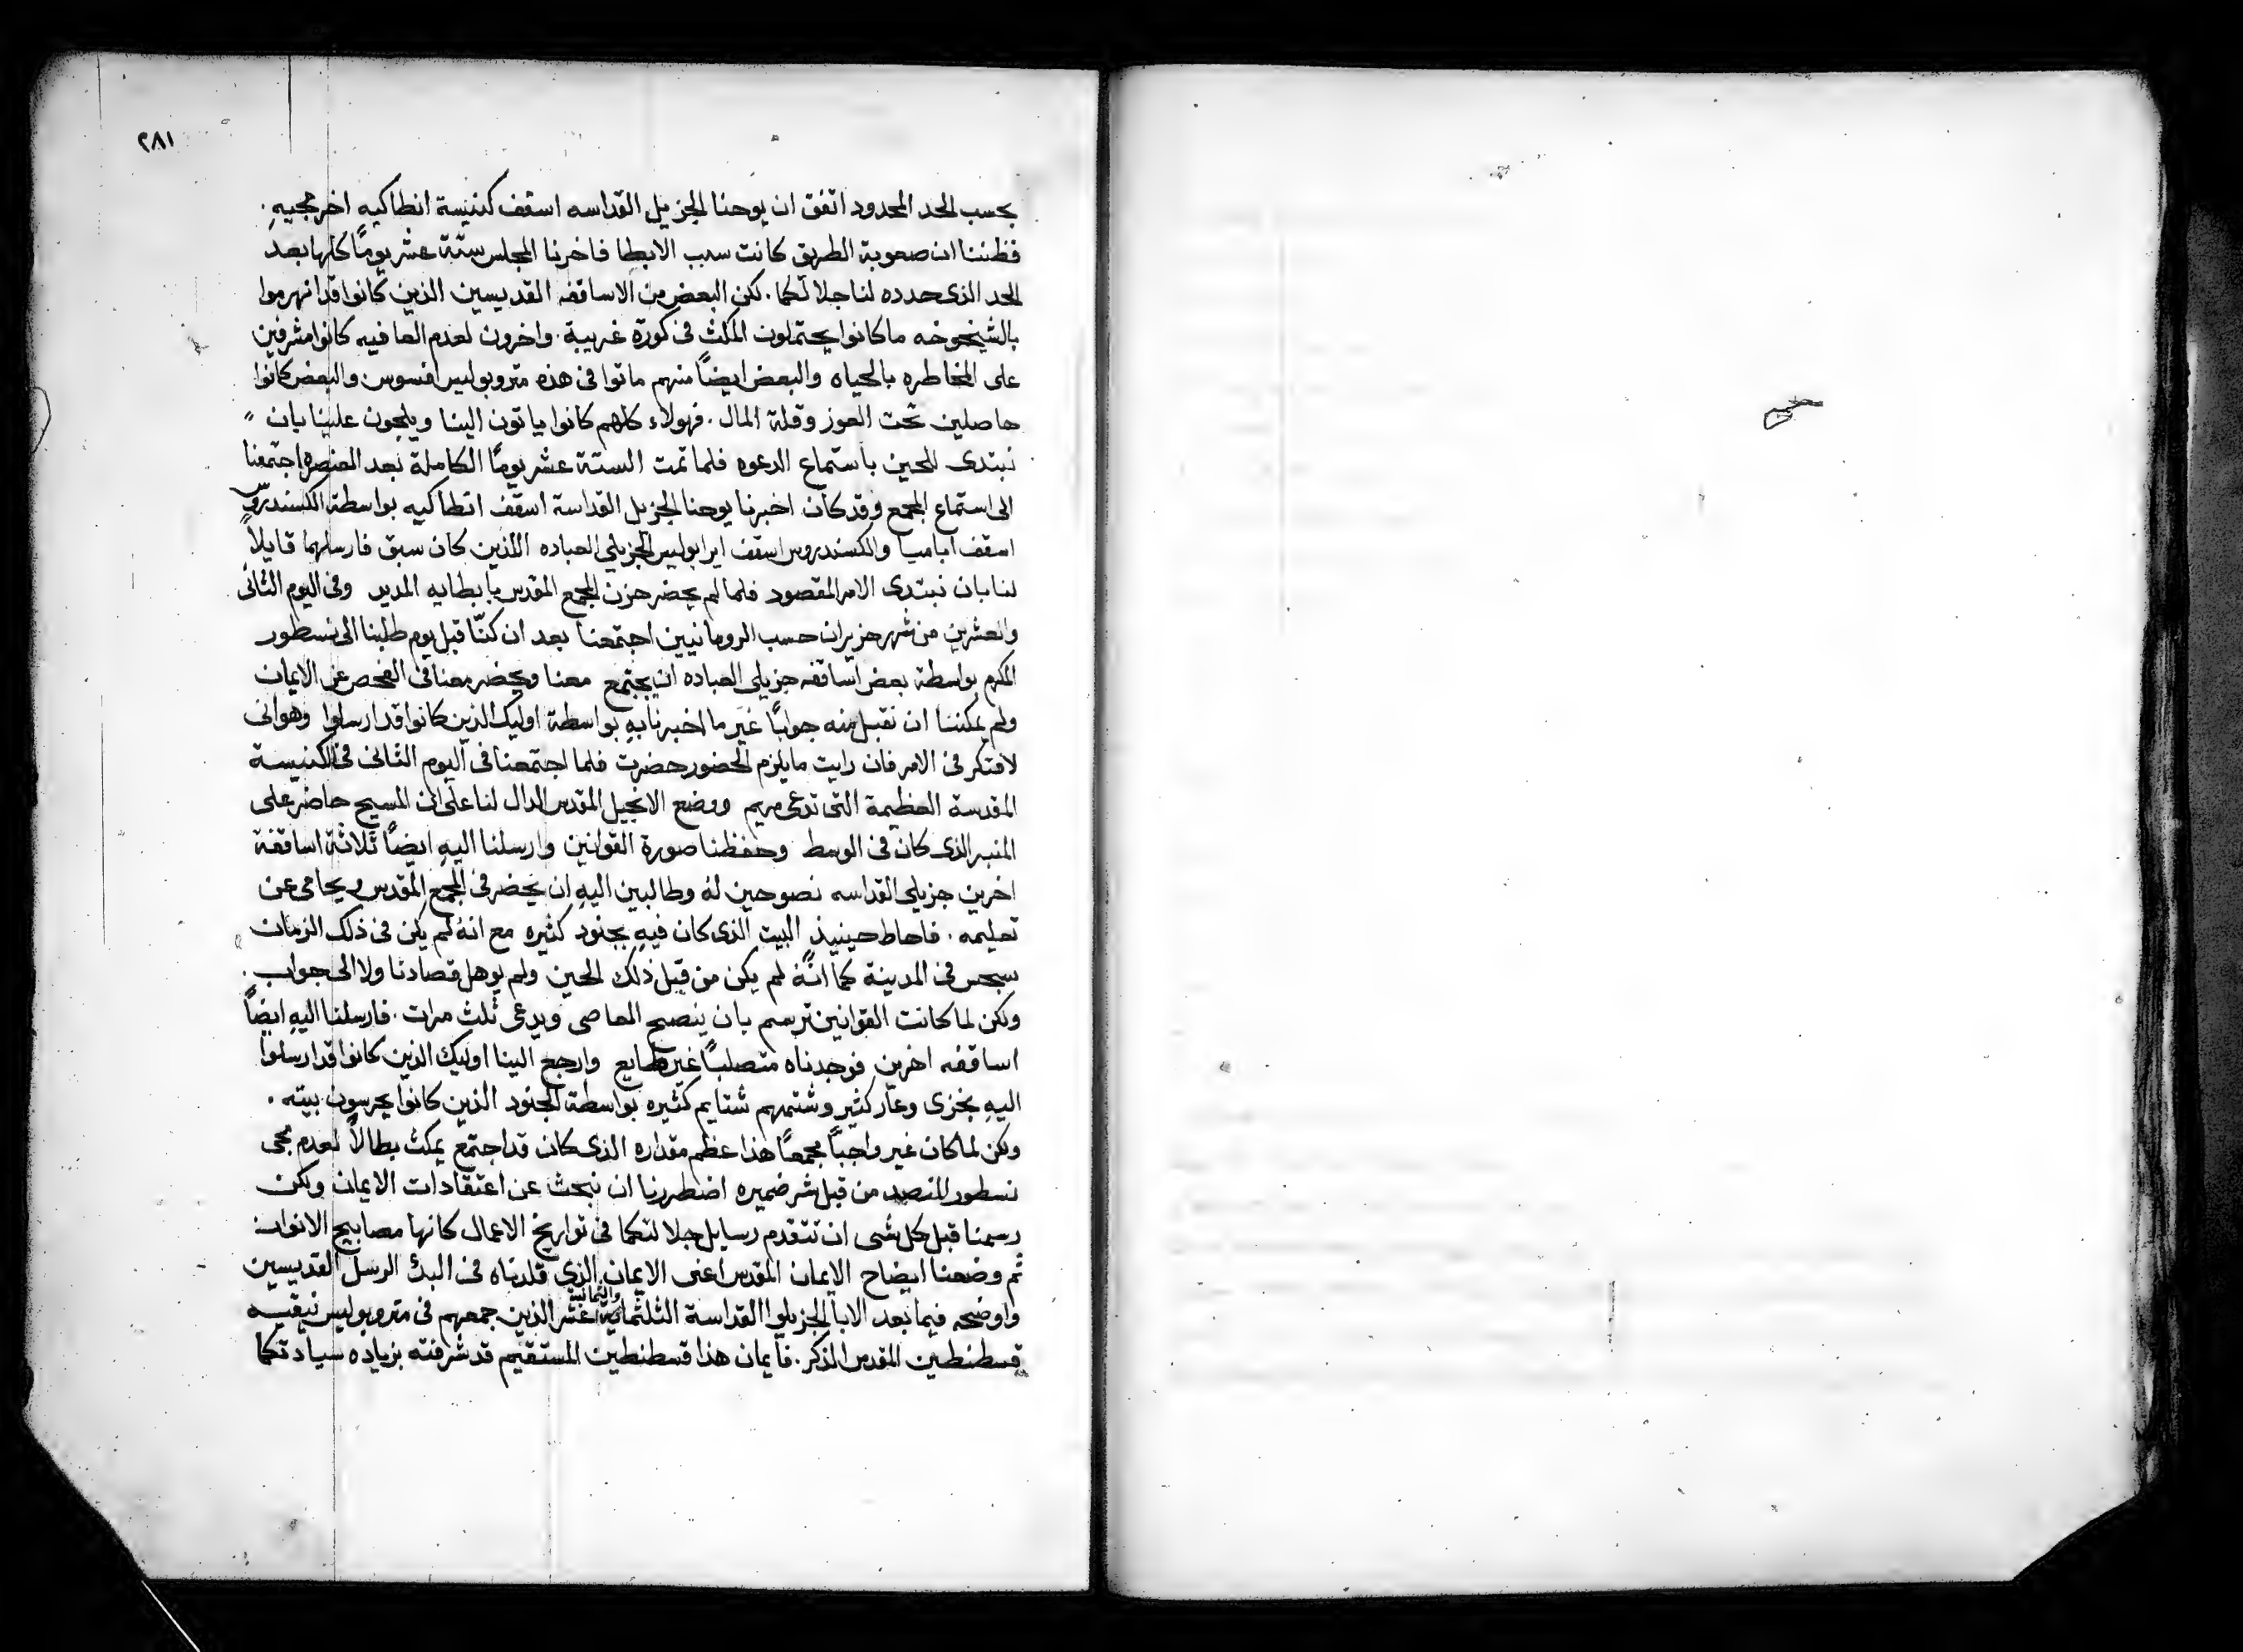 ٢٨١
بحسب الحد المحدود اتفق ان يوحنا الجزيل القداسه اسقف كنيسة انطاكيه اخر مجييهِ.
فظننا ان صعوبة الطريق كانت سبب الابطا فاخرنا المجلس ستة عشر يوماً كلها بعد
الحد الذى حدده لنا جلالتكما. لكن البعض من الاساقفه القديسين الذين كانوا قد انهرموا
بالشيخوخه ما كانوا يحتملون المكث فى كورة غريبة. واخرون لعدم العافيه كانوا مشرفين
على المخاطره بالحياه والبعض ايضاً منهم ماتوا فى هذه متروبوليس افسوس والبعض كانوا
حاصلين تحت العوز وقلة المال. فهولاء كلهم كانوا ياتون الينا ويلجون علينا بان
نبتدى للحين باستماع الدعوه فلما تمت الستة عشر يوماً الكاملة بعد العنصره اجتمعنا
الى استماع المجمع وقد كان اخبرنا يوحنا الجزيل القداسة اسقف انطاكيه بواسطة الكسندروس
اسقف اباميا والكسندروس اسقف ايرابوليس الجزيلى العباده اللذين كان سبق فارسلهما قايلاً
لنا بان نبتدى الامر المقصود فلما لم يحضر حزن المجمع المقدس بابطايه المديد وفى اليوم الثانى
والعشرين من شهر حزيران حسب الرومانيين اجتمعنا بعد ان كنّا قبل يوم طلبنا الى نسطور
المكرم بواسطة بعض اساقفه جزيلى العباده ان يجتمع معنا ويحضر معنا فى الفحص عن الايمان
ولم يمكننا ان نقبل منه جواباً غير ما اخبرنا بهِ بواسطة اوليك الذين كانوا قد ارسلوا وهو انى
لافتكر فى الامر فان رايت ما يلزم الحضور حضرت فلما اجتمعنا فى اليوم الثانى فى الكنيسة
المقدسة العظيمة التى تدعى مريم ووضع الانجيل المقدس الدال لنا على ان المسيح حاضر على
المنبر الذى كان فى الوسط وحفظنا صورة القوانين وارسلنا اليهِ ايضاً ثلاثة اساقفة
اخرين جزيلى القداسه نصوحين له وطالبين اليهِ ان يحضر فى المجمع المقدس ويحامى عن
تعليمه. فاحاط حينيذٍ البيت الذى كان فيهِ بجنود كثيره مع انهُ لم يكن فى ذلك الزمان
سجس فى المدينة كما انّهُ لم يكن من قبل ذلك الحين ولم يوهل قصادنا ولا الى جواب.
ولكن لما كانت القوانين ترسم بان ينصح العاصى ويدعى ثلث مرات. فارسلنا اليهِ ايضاً
اساقفه اخرين فوجدناه متصلباً غير طايع وارجع الينا اوليك الذين كانوا قد ارسلوا
اليهِ بخزى وعار كثير وشتمهم شتايم كثيره بواسطة الجنود الذين كانوا يحرسون بيته.
ولكن لما كان غير واجباً مجمعاً هذا عظم مقداره الذى كان قد اجتمع يمكث بطالاً لعدم مجى
نسطور المتصيد من قبل شر ضميره اضطررنا ان نبحث عن اعتقادات الايمان ولكن
رسمنا قبل كل شى ان تتقدم رسايل جلالتكما فى تواريخ الاعمال كانها مصابيح الانوار
ثم وضعنا ايضاح الايمان المقدس اعنى الايمان الذي قلدناه فى البدء الرسل القديسين
واوضحه فيما بعد الابا الجزيلوا القداسة الثلثماية والثمانية عشر الذين جمعهم فى متروبوليس نيقيه
قسطنطين المقدس الذكر. فايمان هذا قسطنطين المستقيم قد شرفته بزياده سيادتكما